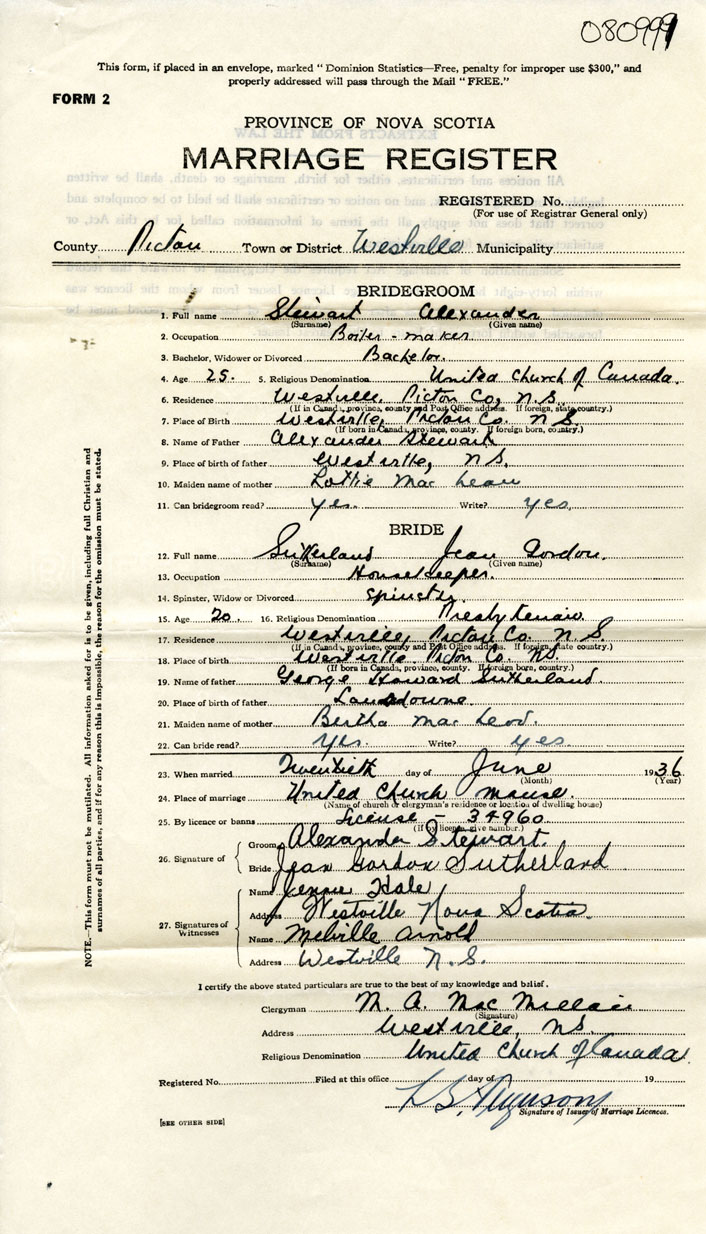 080999
This form, if placed in an envelope, marked "Dominion Statistics—Free, penalty for improper use $300," and
properly addressed will pass through the Mail "FREE."
FORM 2
PROVINCE OF NOVA SCOTIA
MARRIAGE REGISTER
REGISTERED No.
(For use of Registrar General only)
County Pictou Town or District Westville Municipality
BRIDEGROOM
1. Full name Stewart Alexander
(Surname) (Given name)
2. Occupation Boiler-maker
3. Bachelor, Widower or Divorced Bachelor.
4. Age 25. 5. Religious Denomination United Church of Canada.
6. Residence Westville, Pictou Co, N.S.
(If in Canada, province, county and Post Office address. If foreign, state country.)
7. Place of Birth Westville, Pictou Co. N.S.
(If born in Canada, province, county. If foreign born, country.)
8. Name of Father Alexander Stewart
9. Place of birth of father Westville, N.S.
10. Maiden name of mother Lottie MacLean
11. Can bridegroom read? yes. Write? yes.
BRIDE
12. Full name Sutherland Jean Gordon.
(Surname) (Given name)
13. Occupation Housekeeper.
14. Spinster, Widow or Divorced Spinster.
15. Age 20. 16. Religious Denomination Presbyterian.
17. Residence Westville, Pictou Co. N.S.
(If in Canada, province, county and Post Office address. If foreign, state country.)
18. Place of birth Westville Pictou Co. N.S.
(If born in Canada, province, county. If foreign born, country.)
19. Name of father George Howard Sutherland
20. Place of birth of father Lansdowne.
21. Maiden name of mother Bertha MacLeod.
22. Can bride read? yes. Write? yes.
23. When married Twentieth day of June 1936
(Month) (Year)
24. Place of marriage United Church manse.
(Name of church or clergyman's residence or location of dwelling house)
25. By licence or banns License - 34960
(If by licence, give number.)
26. Signature of
Groom Alexander Stewart.
Bride Jean Gordon Sutherland
27. Signatures of Witnesses
Name Jennie Hale
Address Westville Nova Scotia.
Name Melville Arnold
Address Westville N.S.
I certify the above stated particulars are true to the best of my knowledge and belief.
Clergyman M. A. MacMillan
(Signature)
Address Westville, N.S.
Religious Denomination United Church of Canada.
Registered No. Filed at this office day of 19
Signature of Issuer of Marriage Licences.
[SEE OTHER SIDE]
NOTE.—This form must not be mutilated. All information asked for is to be given, including full Christian and
surnames of all parties, and if for any reason this is impossible, the reason for the omission must be stated.